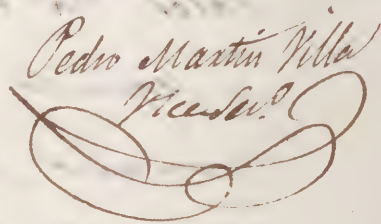 Pedro Martin Villa
Vicesecr.º